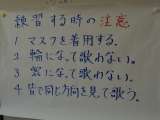 練習する時の注意
1 マスクを着用する。
2 輪になって歌わない。
3 密になって歌わない。
4 皆で同じ方向を見て歌う。